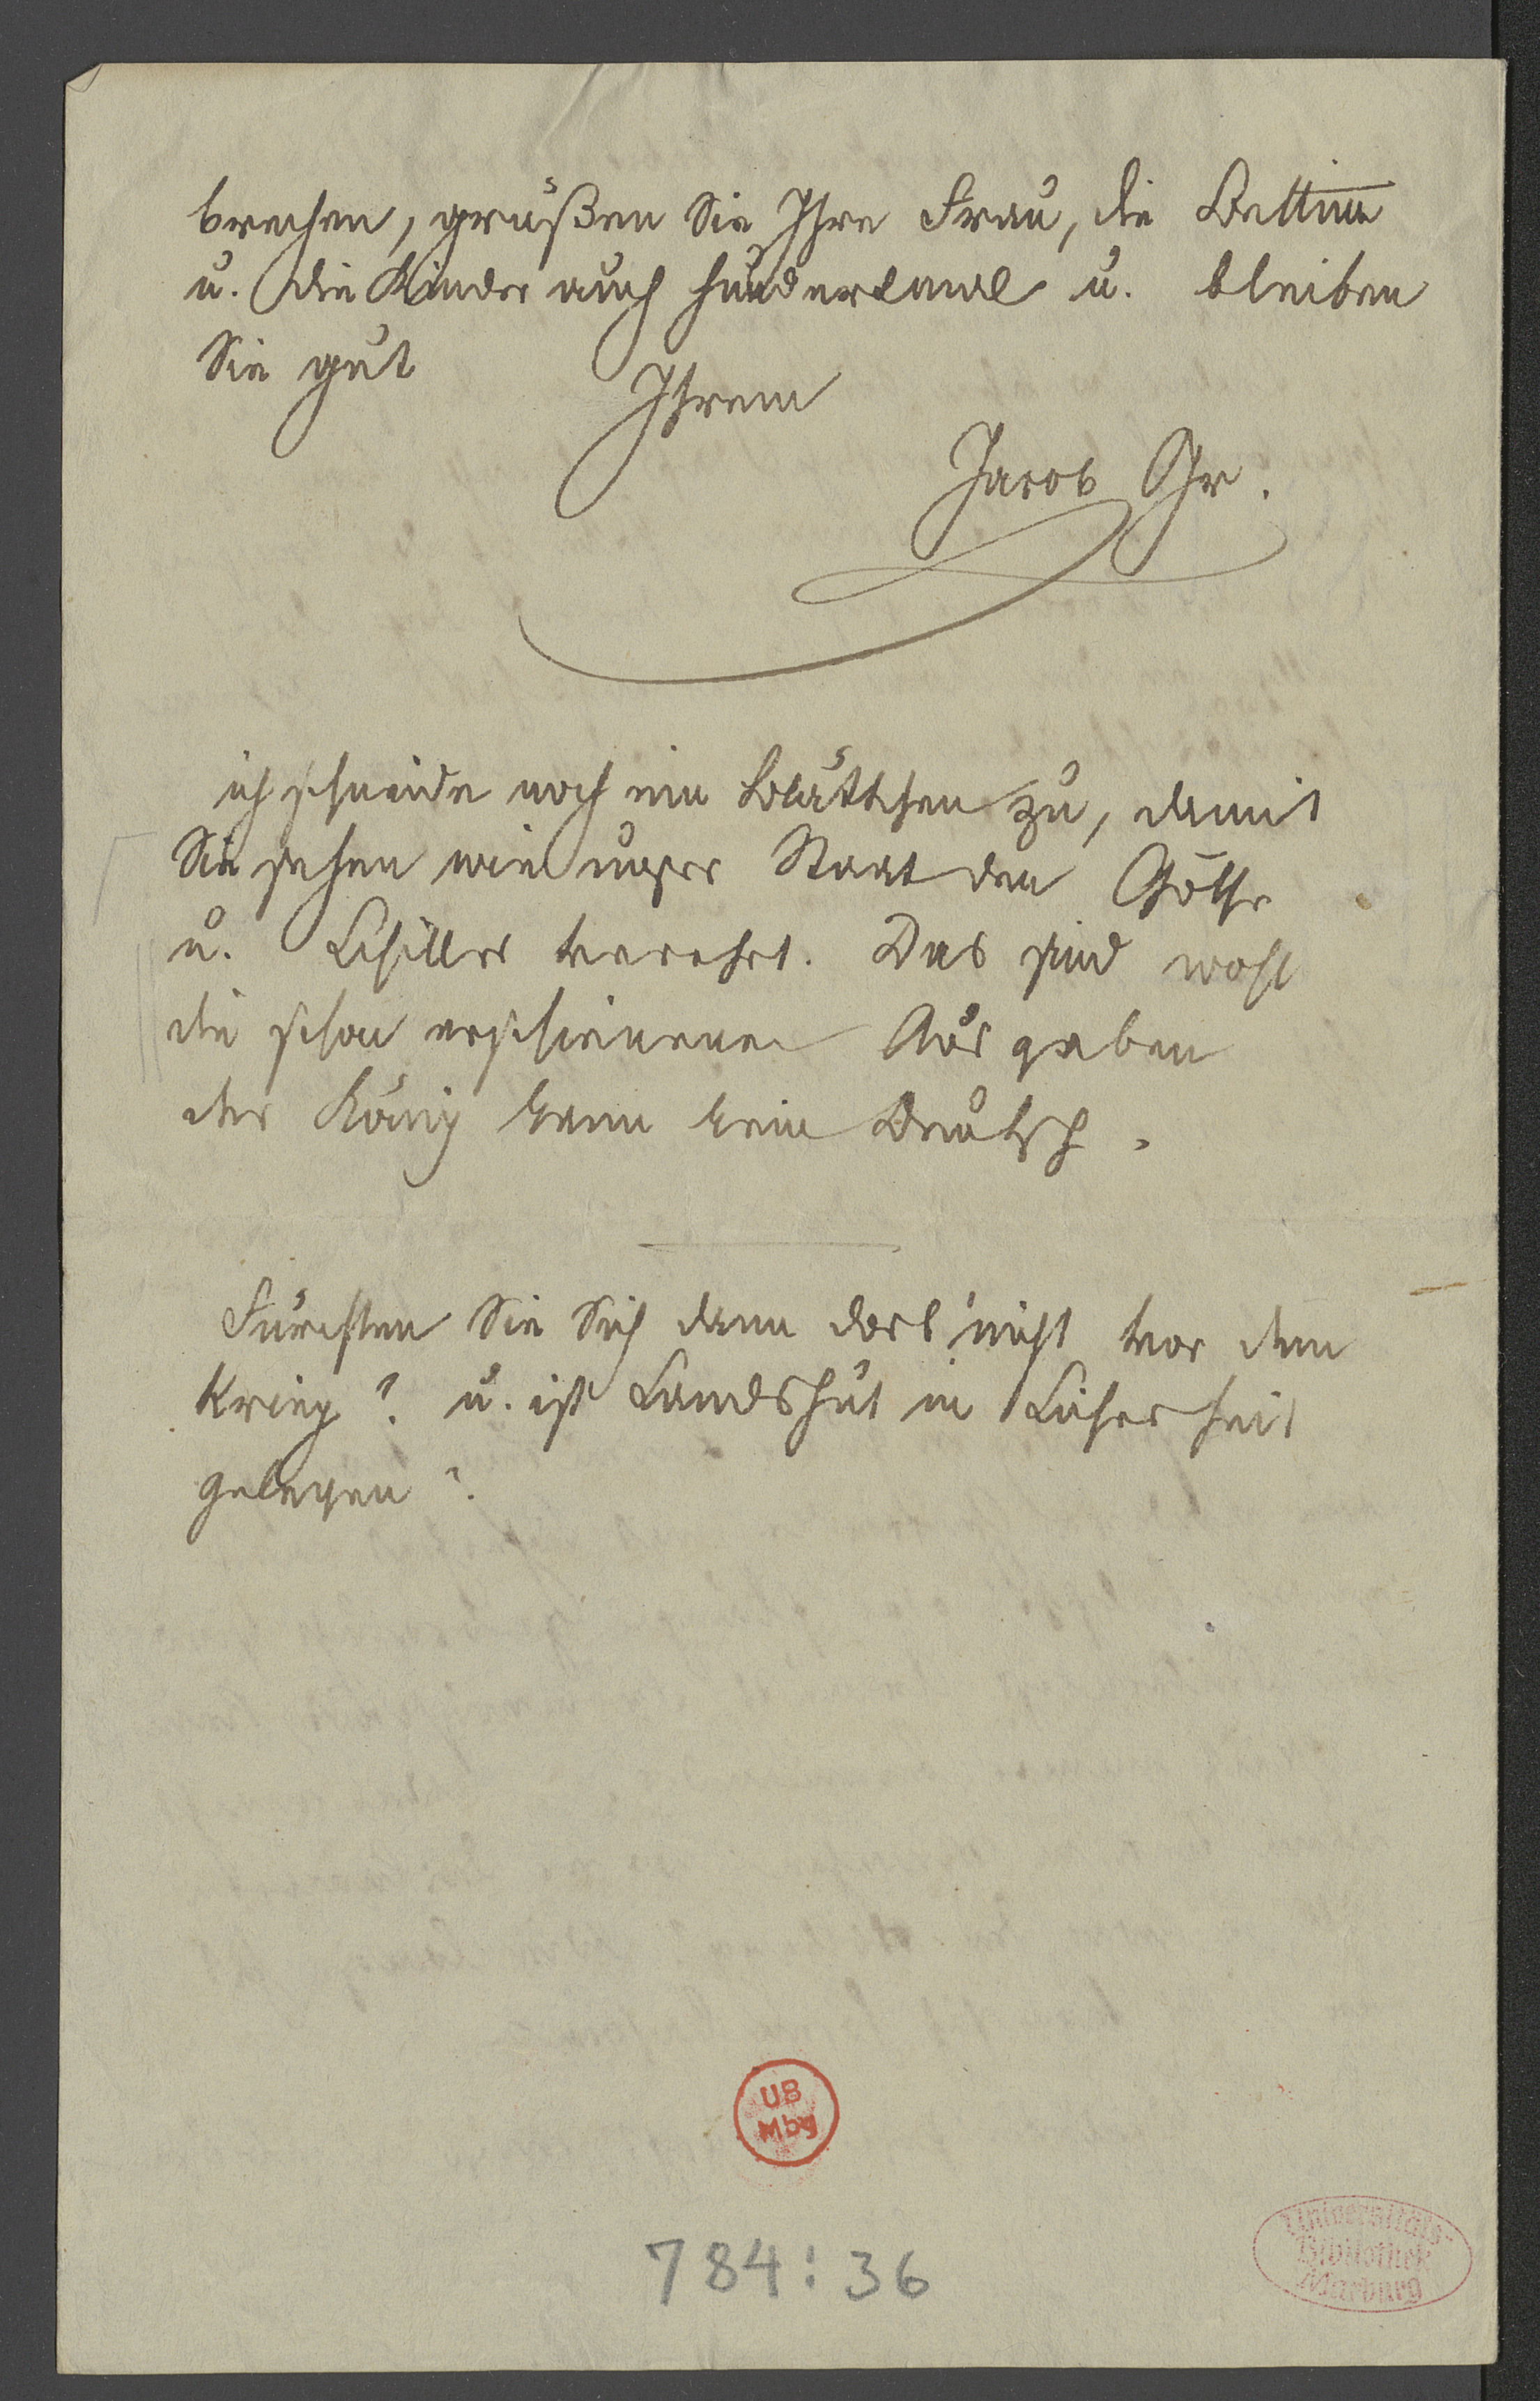 brechen, grüßen Sie Ihre Frau, die Bettine
u. die Kinder auch hundertmal u. bleiben
Sie gut
Ihrem
Jacob Gr.
ich schneide noch ein Blättchen zu, damit
Sie sehen wie unser Staat den Göthe
u. Schiller verehrt. Das sind wohl
die schon erschienenen Ausgaben
der König kann kein Deutsch.
Fürchten Sie Sich denn dort nicht vor dem
Krieg? u. ist Landshut in Sicherheit
gelegen?
UB
Mbg
784:36
Universitäts-
Bibliothek
Marburg